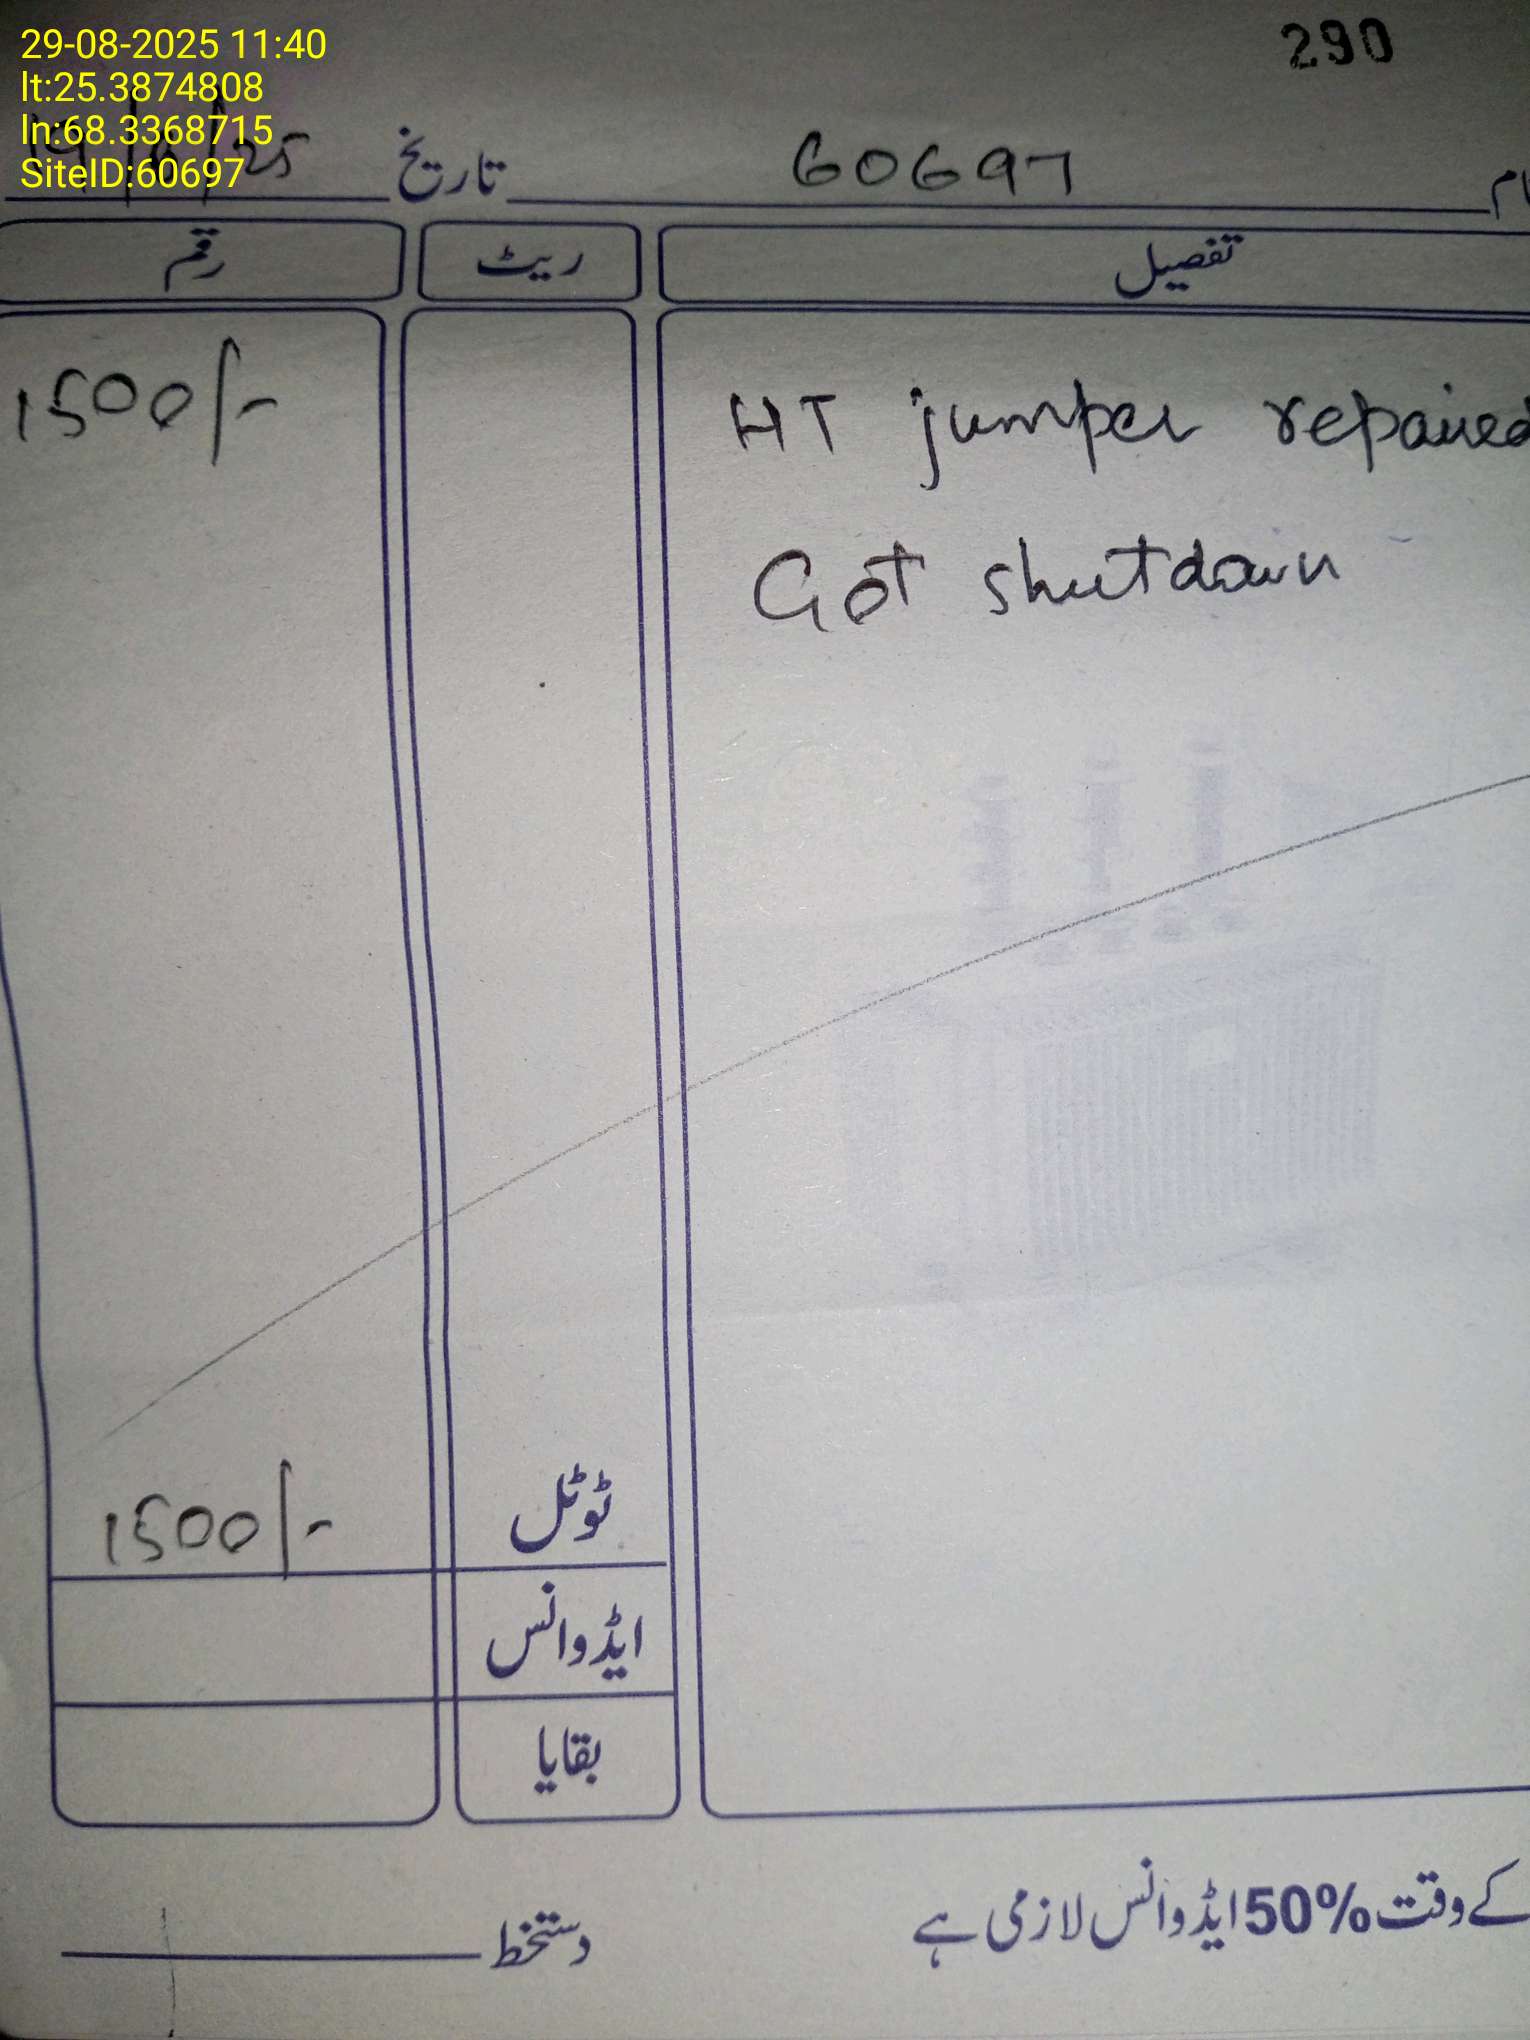 29-08-2025 11:40
lt:25.3874808
ln:68.3368715
SiteID:60697
290
60697 تاریخ
تفصیل ریٹ رقم
HT jumper repaired 1500/-
Got shutdown
ٹوٹل 1500/-
ایڈوانس
بقایا
کے وقت 50% ایڈوانس لازمی ہے
دستخط